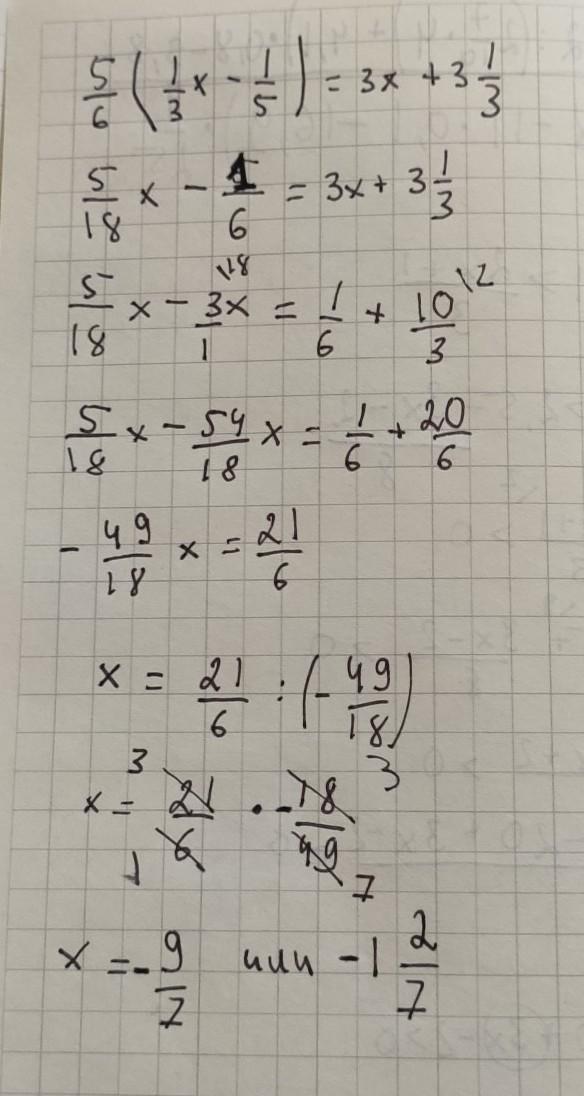 5/6 (1/3 x - 1/5) = 3x + 3 1/3
5/18 x - 1/6 = 3x + 3 1/3
5/18 x - 3x/1 \18 = 1/6 + 10/3 \2
5/18 x - 54/18 x = 1/6 + 20/6
- 49/18 x = 21/6
x = 21/6 : (- 49/18)
x = 3 21/6 1 · - 18/49 3 7
x = - 9/7 или - 1 2/7